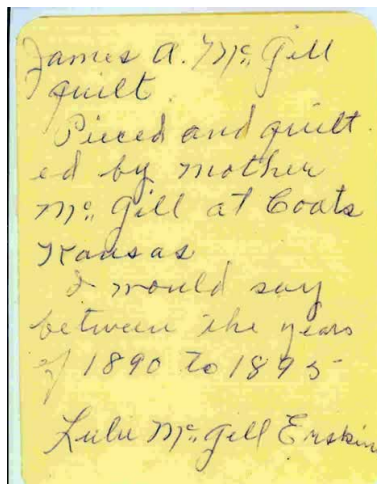 James A. McGill
quilt
Pieced and quilt
ed by mother
McGill at Coats
Kansas
I would say
between the years
of 1890 to 1895
Lulu McGill Erskin